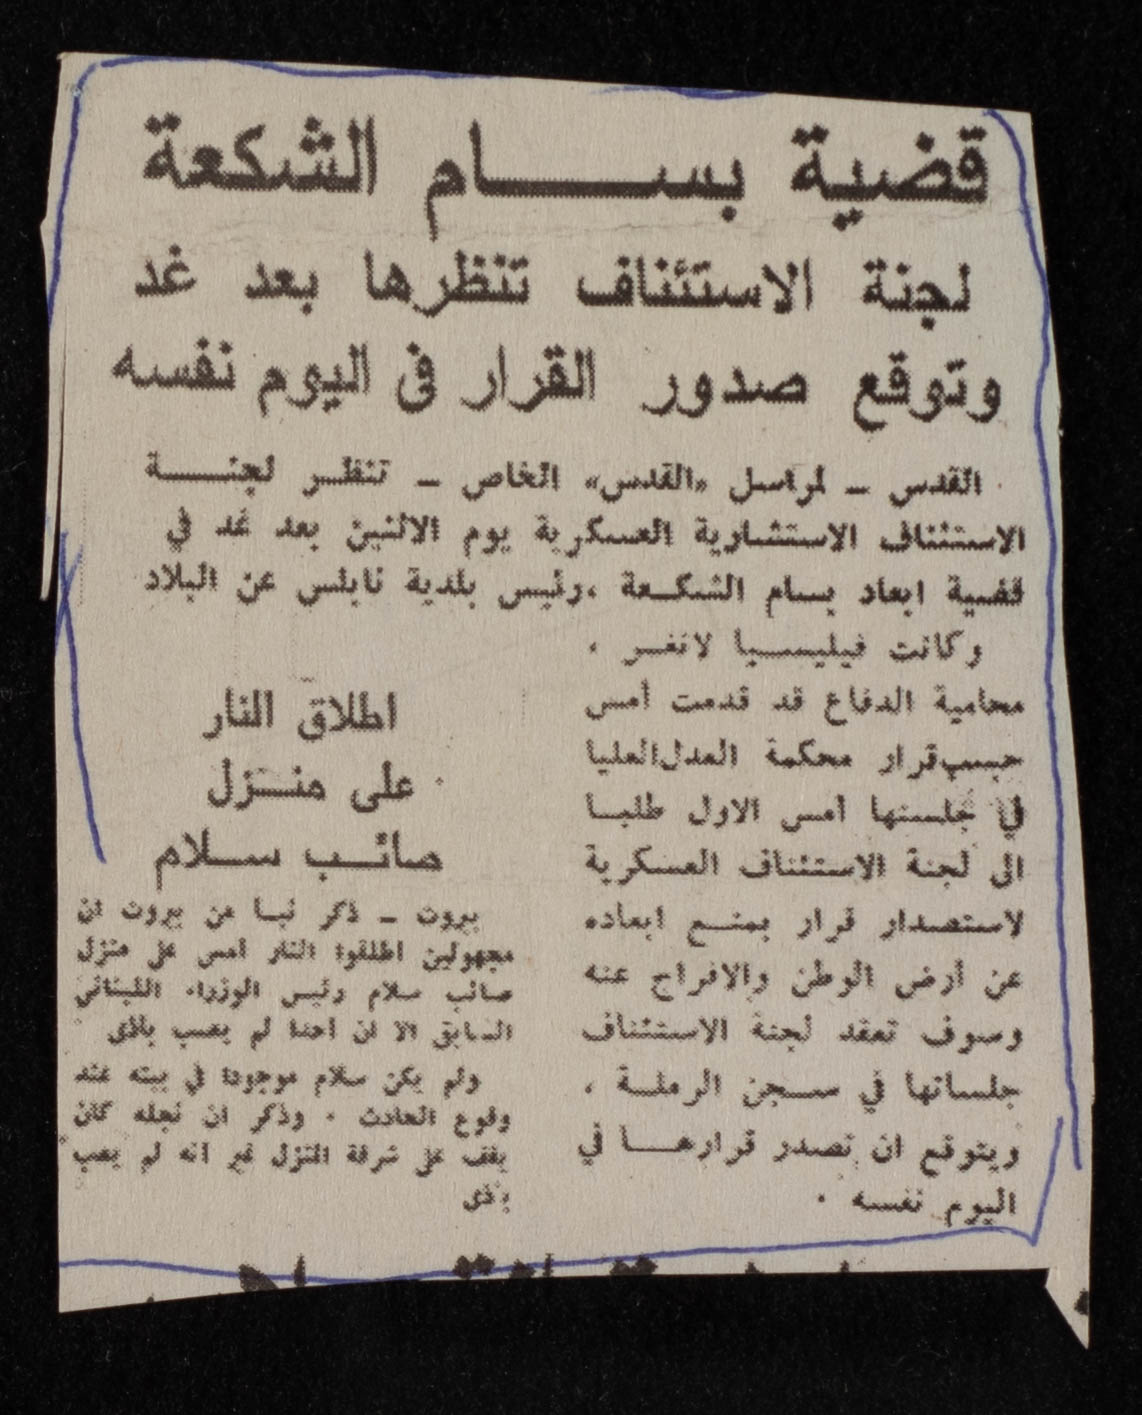 قضية بسام الشكعة
لجنة الاستئناف تنظرها بعد غد
وتوقع صدور القرار فى اليوم نفسه
القدس ــ لمراسل «القدس» الخاص ــ تنظر لجنة
الاستئناف الاستشارية العسكرية يوم الاثنين بعد غد في
قضية ابعاد بسام الشكعة ،رئيس بلدية نابلس عن البلاد
وكانت فيليسيا لانغر ،
محامية الدفاع قد قدمت أمس
حسب قرار محكمة العدل العليا
في جلستها أمس الاول طلبا
الى لجنة الاستئناف العسكرية
لاستصدار قرار بمنع ابعاده
عن أرض الوطن والافراج عنه
وسوف تعقد لجنة الاستئناف
جلساتها في سجن الرملة ،
ويتوقع ان تصدر قرارها في
اليوم نفسه .
اطلاق النار
على منزل
صائب سلام
بيروت ــ ذكر نبأ من بيروت ان
مجهولين اطلقوا النار امس على منزل
صائب سلام رئيس الوزراء اللبناني
السابق الا ان احدا لم يصب باذى
ولم يكن سلام موجودا في بيته عند
وقوع الحادث . وذكر ان نجله كان
يقف على شرفة المنزل غير انه لم يصب
باذى